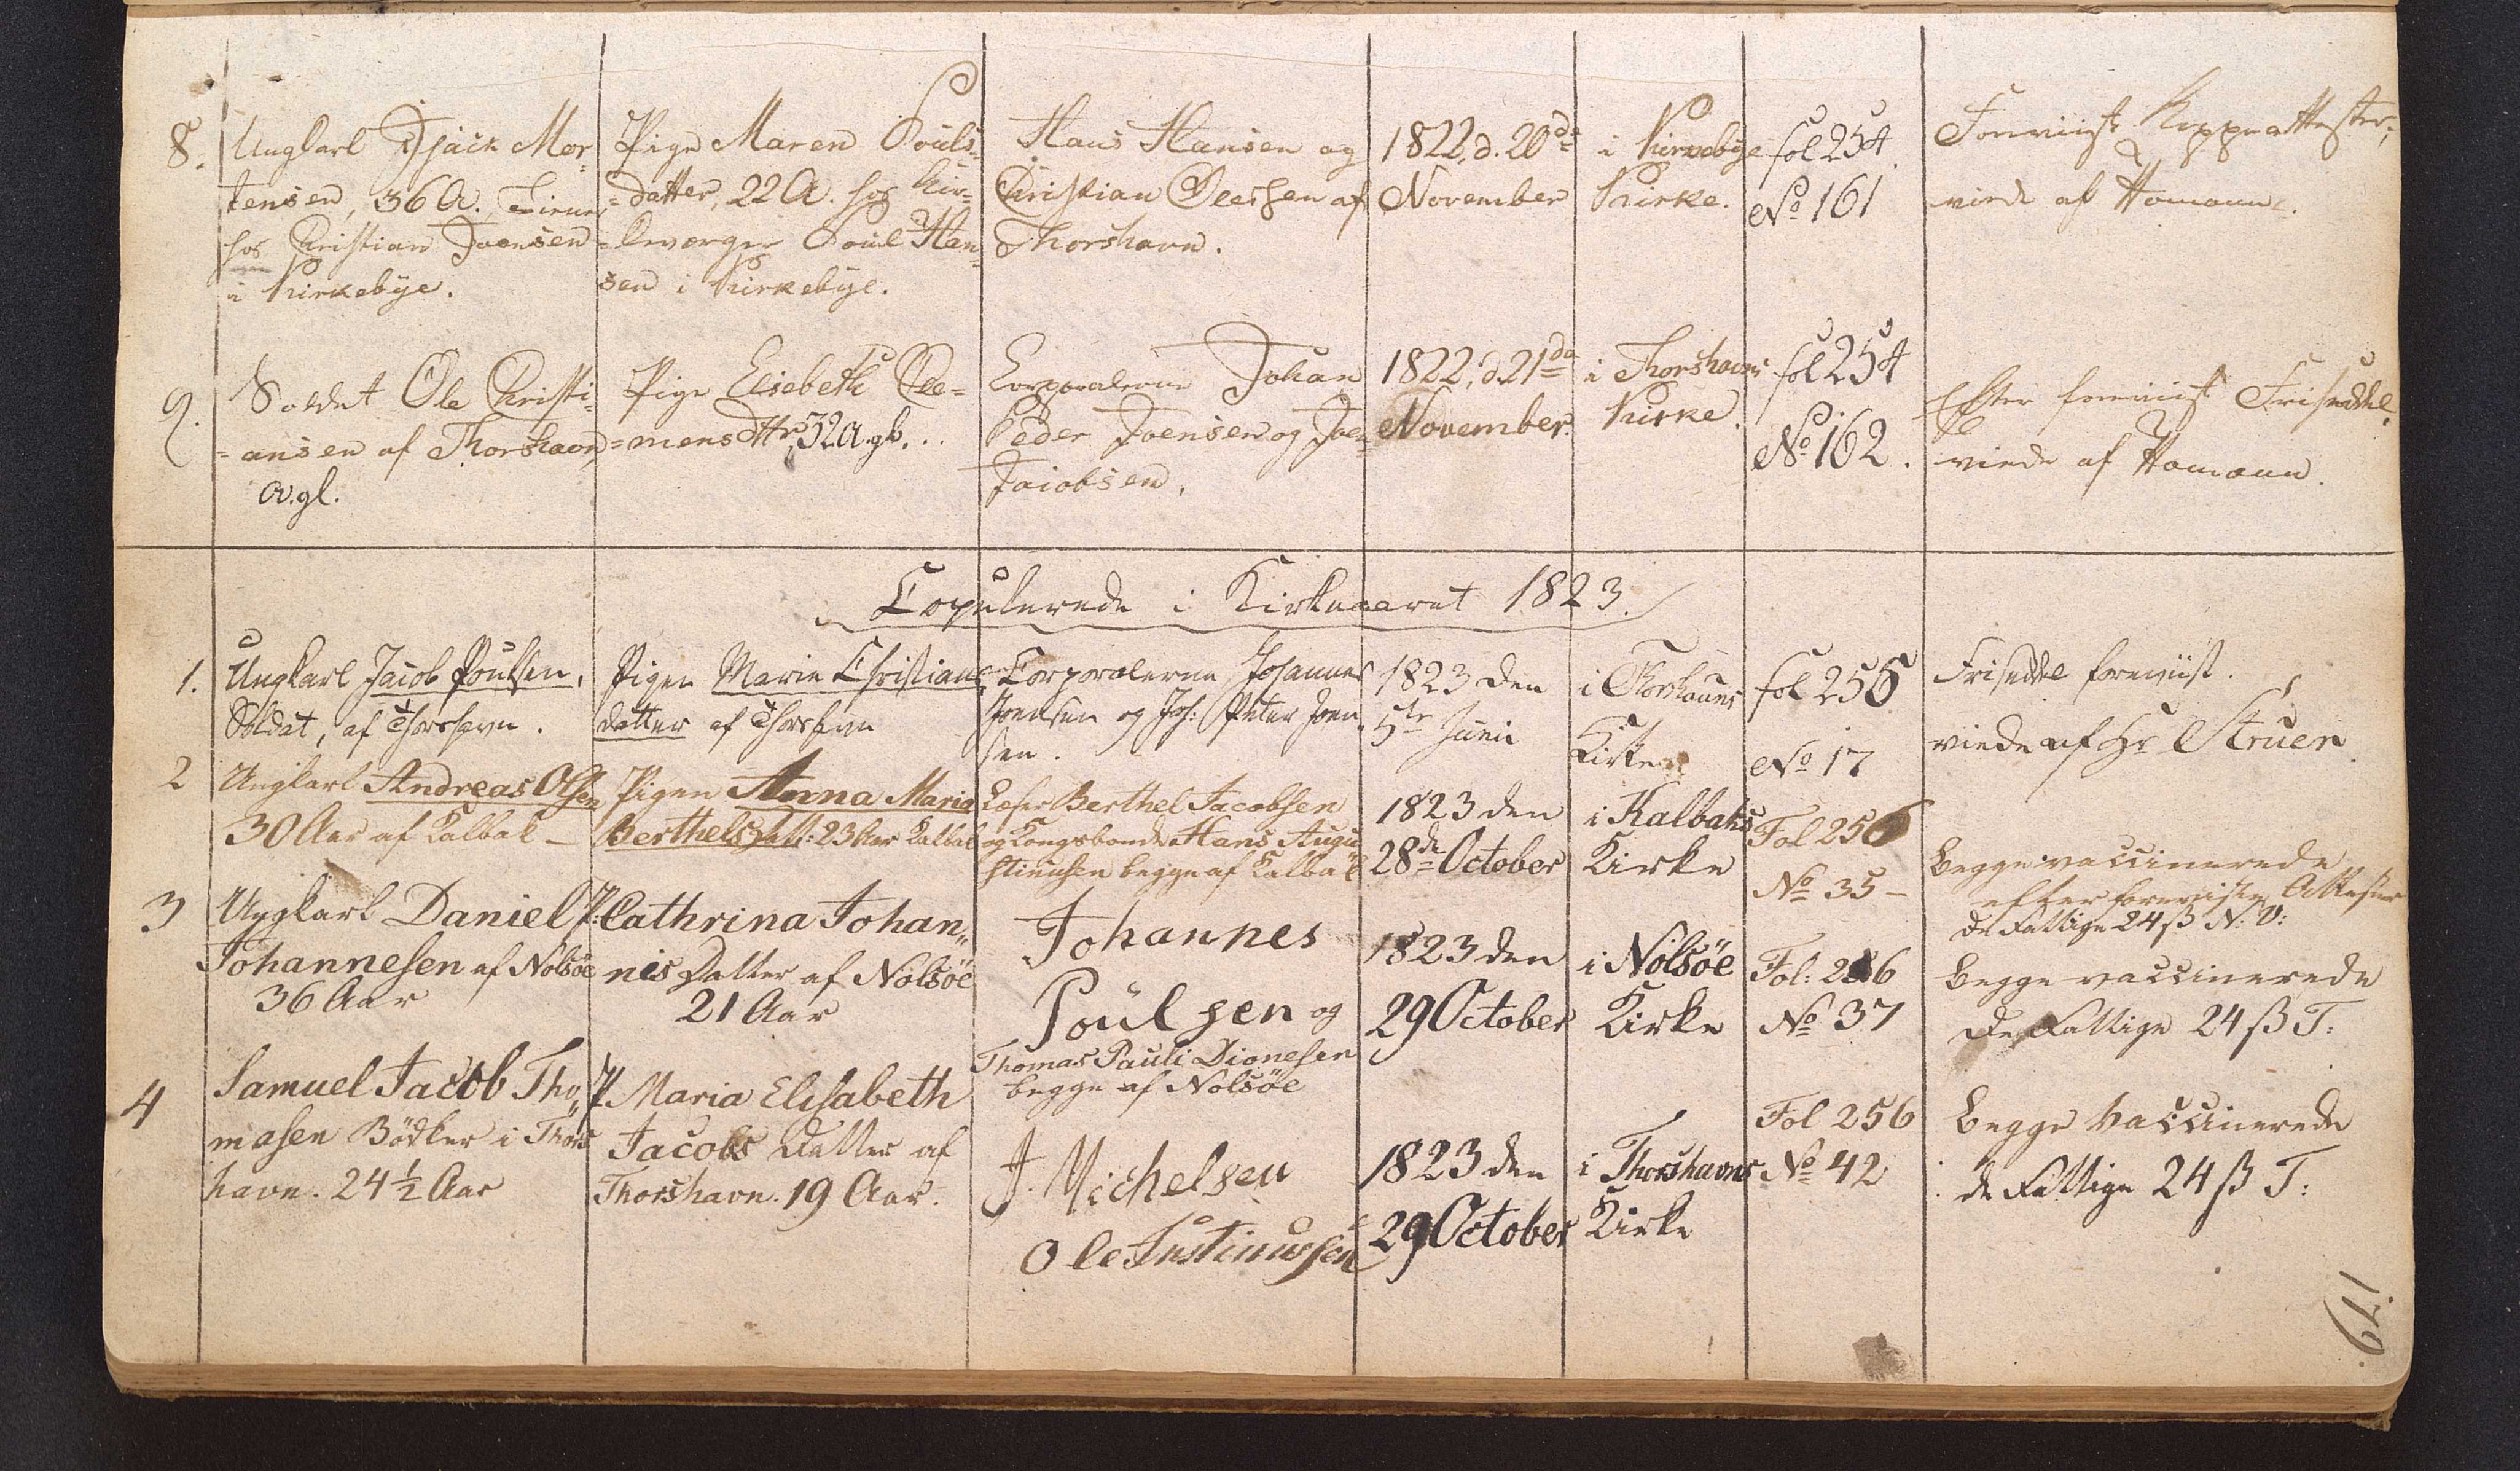 8.
Ungkarl Djáck Mor-
tensen, 36 A., Tiener
hos Christian Joensen
i Kirkebye.
Pige Maren Pouls-
=datter, 22 A. hos Kir-
=keværger Poul Han-
sen i Kirkebye.
Hans Hansen og
Christian af
Thorshavn.
1822, d. 20de
November
i Kirkebye
Kirke.
fol 254.
No 161
Foreviist Koppeattester,
viede af Homann.
9.
Soldat Ole Christi-
=ansen af Thorshavn
A. gl.
Pige Elsebeth Cle=
=mensdttr, 32 A. gl. ..
Corporalerne Johan
Peder Joensen og Joen
Jacobsen.
1822, d. 21de
November.
i Thorshavns
Kirke.
fol 254
No 162.
Efter foreviist Friseddel,
viede af Homann.
Copulerede i Kirkeaaret 1823.
1.
Ungkarl Jacob Poulsen,
Soldat, af Thorshavn.
Pigen Marie Christians
datter af Thorshavn
Corporalerne Johannes
Joensen og Joh: Peter Joen
sen.
1823 den
5te Junii
i Thorshavns
Kirke
fol 255
No 17
Friseddel foreviist.
viede af Hr Struer
2
Ungkarl Andreas Olsen
30 Aar af Kalbak –
Pigen Anna Maria
Berthels Datt: 23 Aar Kalbak
Læser Berthel Jacobsen
og Kongsbonde Hans Augu
stinusen begge af Kalbak
1823 den
28de October
i Kalbaks
Kirke
Fol 256
No 35 –
Begge vaccinerede
efter foreviste Attester
de Fattige 24 ß N. V:
3
Ungkarl Daniel
Johannesen af Nolsöe
36 Aar
P: Cathrina Johan„
nis Datter af Nölsöe
21 Aar
Johannes
Poulsen og
Thomas Pauli Dionesen
begge af Nolsöe
1823 den
29 October
i Nölsöe
Kirke
Fol: 256
No 37
Begge vaccinerede
De Fattige 24 ß T:
4
Samuel Jacob Tho„
masen Bödker i Thors
havn. 24 ½ Aar
P. Maria Elisabeth
Jacobs Datter af
Thorshavn. 19 Aar.
J. Michelsen
Ole Justinussen
1823 den
29 October
i Thorshavns
Kirke
Fol 256
No 42
Begge vaccinerede
de Fattige 24 ß T:
179.